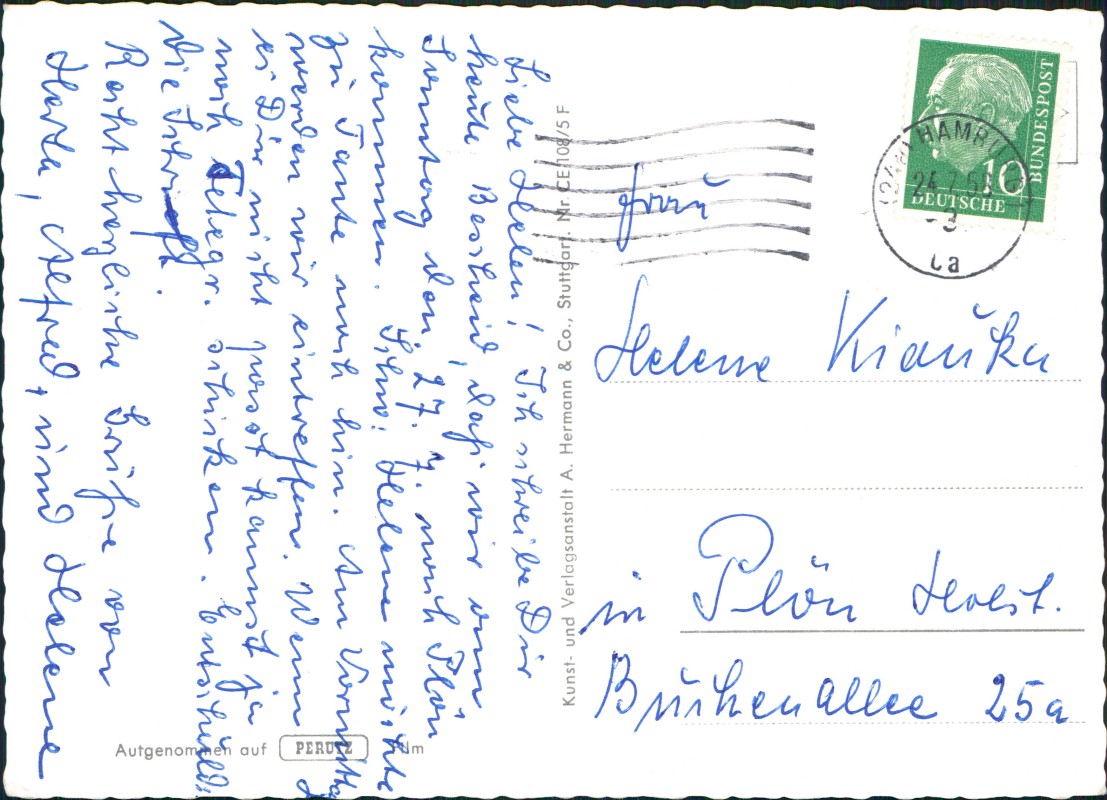 Liebe Helen! Ich schreibe Dir
heute Bescheid, daß wir am
Sonntag den, 27. 7. nach Plön
kommen. Helene möchte
zu Tante noch hin. Am Vormittag
werden wir eintreffen. Wenn
es Dir nicht passt kannst ja
noch Telegr. schicken. Entschuld.
die Schrift.
Recht herzliche Grüße von
Herta, Alfred, und Helene
Aufgenommen auf PERUTZ Film
Kunst- und Verlagsanstalt A. Hermann & Co., Stuttgart. Nr. CE 108/5 F
BUNDESPOST
10
DEUTSCHE
HAMBURG
24.7.58
Frau
Helene Kiauka
in Plön Holst.
Buchenallee 25a